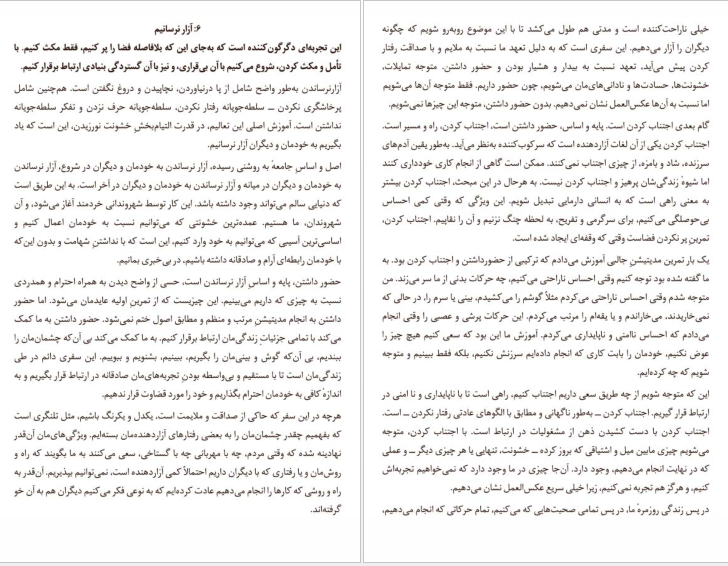 ۶: آزار نرسانیم
این تجربه‌ای دگرگون‌کننده است که به‌جای این که بلافاصله فضا را پر کنیم، فقط مکث کنیم. با
تأمل و مکث کردن، شروع می‌کنیم با آن بی‌قراری، و نیز با آن گستردگی بنیادی ارتباط برقرار کنیم.
آزارنرساندن به‌طور واضح شامل از پا درنیاوردن، نچاپیدن و دروغ نگفتن است. هم‌چنین شامل
پرخاشگری نکردن ــ سلطه‌جویانه رفتار نکردن، سلطه‌جویانه حرف نزدن و تفکر سلطه‌جویانه
نداشتن است. آموزش اصلی این تعالیم، در قدرت التیام‌بخشِ خشونت نورزیدن، این است که یاد
بگیریم به خودمان و دیگران آزار نرسانیم.
اصل و اساسِ جامعهٔ به روشنی رسیده، آزار نرساندن به خودمان و دیگران در شروع، آزار نرساندن
به خودمان و دیگران در میانه و آزار نرساندن به خودمان و دیگران در آخر است. به این طریق است
که دنیایی سالم می‌تواند وجود داشته باشد. این کار توسط شهروندانی خردمند آغاز می‌شود، و آن
شهروندان، ما هستیم. عمده‌ترین خشونتی که می‌توانیم نسبت به خودمان اعمال کنیم و
اساسی‌ترین آسیبی که می‌توانیم به خود وارد کنیم، این است که با نداشتنِ شهامت و بدون این‌که
با خودمان رابطه‌ای آرام و صادقانه داشته باشیم، در بی‌خبری بمانیم.
حضور داشتن، پایه و اساسِ آزار نرساندن است، حسی از واضح دیدن به همراه احترام و همدردی
نسبت به چیزی که داریم می‌بینیم. این چیزیست که از تمرینِ اولیه عایدمان می‌شود. اما حضور
داشتن به انجام مدیتیشن مرتب و منظم و مطابق اصول ختم نمی‌شود. حضور داشتن به ما کمک
می‌کند با تمامی جزئیاتِ زندگی‌مان ارتباط برقرار کنیم. به ما کمک می‌کند بی آن‌که چشمان‌مان را
ببندیم، بی آن‌که گوش و بینی‌مان را بگیریم، ببینیم، بشنویم و ببوییم. این سفری دائم در طی
زندگی‌مان است تا با مستقیم و بی‌واسطه بودنِ تجربه‌های‌مان صادقانه در ارتباط قرار بگیریم و به
اندازهٔ کافی به خودمان احترام بگذاریم و خود را مورد قضاوت قرار ندهیم.
هرچه در این سفر که حاکی از صداقت و ملایمت است، یکدل و یکرنگ باشیم، مثل تلنگری است
که بفهمیم چقدر چشمان‌مان را به بعضی رفتارهای آزاردهنده‌مان بسته‌ایم. ویژگی‌های‌مان آن‌قدر
نهادینه شده که وقتی مردم، چه با مهربانی چه با گستاخی، سعی می‌کنند به ما بگویند که راه و
روش‌مان و یا رفتاری که با دیگران داریم احتمالاً کمی آزاردهنده است، نمی‌توانیم بپذیریم. آن‌قدر به
راه و روشی که کارها را انجام می‌دهیم عادت کرده‌ایم که به نوعی فکر می‌کنیم دیگران هم به آن خو
گرفته‌اند.
خیلی ناراحت‌کننده است و مدتی هم طول می‌کشد تا با این موضوع روبه‌رو شویم که چگونه
دیگران را آزار می‌دهیم. این سفری است که به دلیل تعهد ما نسبت به ملایم و با صداقت رفتار
کردن پیش می‌آید، تعهد نسبت به بیدار و هشیار بودن و حضور داشتن. متوجه تمایلات،
خشونت‌ها، حسادت‌ها و نادانی‌های‌مان می‌شویم، چون حضور داریم. فقط متوجه آن‌ها می‌شویم
اما نسبت به آن‌ها عکس‌العمل نشان نمی‌دهیم. بدون حضور داشتن، متوجه این چیزها نمی‌شویم.
گام بعدی اجتناب کردن است. پایه و اساس، حضور داشتن است، اجتناب کردن، راه و مسیر است.
اجتناب کردن یکی از آن لغات آزاردهنده است که سرکوب‌کننده به‌نظر می‌آید. به‌طور یقین آدم‌های
سرزنده، شاد و بامزه، از چیزی اجتناب نمی‌کنند. ممکن است گاهی از انجام کاری خودداری کنند
اما شیوهٔ زندگی‌شان پرهیز و اجتناب کردن نیست. به هرحال در این مبحث، اجتناب کردن بیشتر
به معنی راهی است که به انسانی دارمایی تبدیل شویم. این ویژگی که وقتی کمی احساس
بی‌حوصلگی می‌کنیم، برای سرگرمی و تفریح، به لحظه چنگ نزنیم و آن را نقاپیم. اجتناب کردن،
تمرینِ پر نکردن فضاست وقتی که وقفه‌ای ایجاد شده است.
یک بار تمرین مدیتیشنِ جالبی آموزش می‌دادم که ترکیبی از حضورداشتن و اجتناب کردن بود. به
ما گفته شده بود توجه کنیم وقتی احساس ناراحتی می‌کنیم، چه حرکات بدنی از ما سر می‌زند. من
متوجه شدم وقتی احساس ناراحتی می‌کردم مثلاً گوشم را می‌کشیدم، بینی یا سرم را، در حالی که
نمی‌خاریدند، می‌خاراندم و یا یقه‌ام را مرتب می‌کردم. این حرکات پرشی و عصبی را وقتی انجام
می‌دادم که احساس ناامنی و ناپایداری می‌کردم. آموزش ما این بود که سعی کنیم هیچ چیز را
عوض نکنیم، خودمان را بابت کاری که انجام داده‌ایم سرزنش نکنیم، بلکه فقط ببینیم و متوجه
شویم که چه کرده‌ایم.
این که متوجه شویم از چه طریق سعی داریم اجتناب کنیم، راهی است تا با ناپایداری و نا امنی در
ارتباط قرار گیریم. اجتناب کردن ــ به‌طور ناگهانی و مطابق با الگوهای عادتی رفتار نکردن ــ است.
اجتناب کردن با دست کشیدن ذهن از مشغولیات در ارتباط است. با اجتناب کردن، متوجه
می‌شویم چیزی مابین میل و اشتیاقی که بروز کرده ــ خشونت، تنهایی یا هر چیزی دیگر ــ و عملی
که در نهایت انجام می‌دهیم، وجود دارد. آن‌جا چیزی در ما وجود دارد که نمی‌خواهیم تجربه‌اش
کنیم، و هرگز هم تجربه نمی‌کنیم، زیرا خیلی سریع عکس‌العمل نشان می‌دهیم.
در پس زندگی روزمرهٔ ما، در پس تمامی صحبت‌هایی که می‌کنیم، تمام حرکاتی که انجام می‌دهیم،